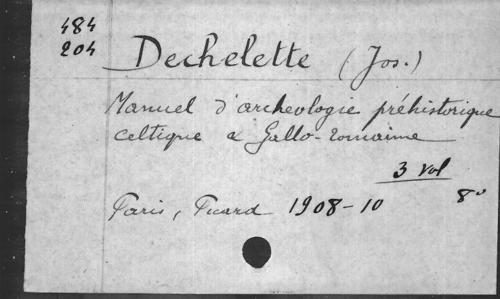 484
204
Dechelette (Jos.)
Manuel d'archeologie préhistorique
celtique & Gallo-romaine
3 vol
Paris, Picard 1908-10 8°